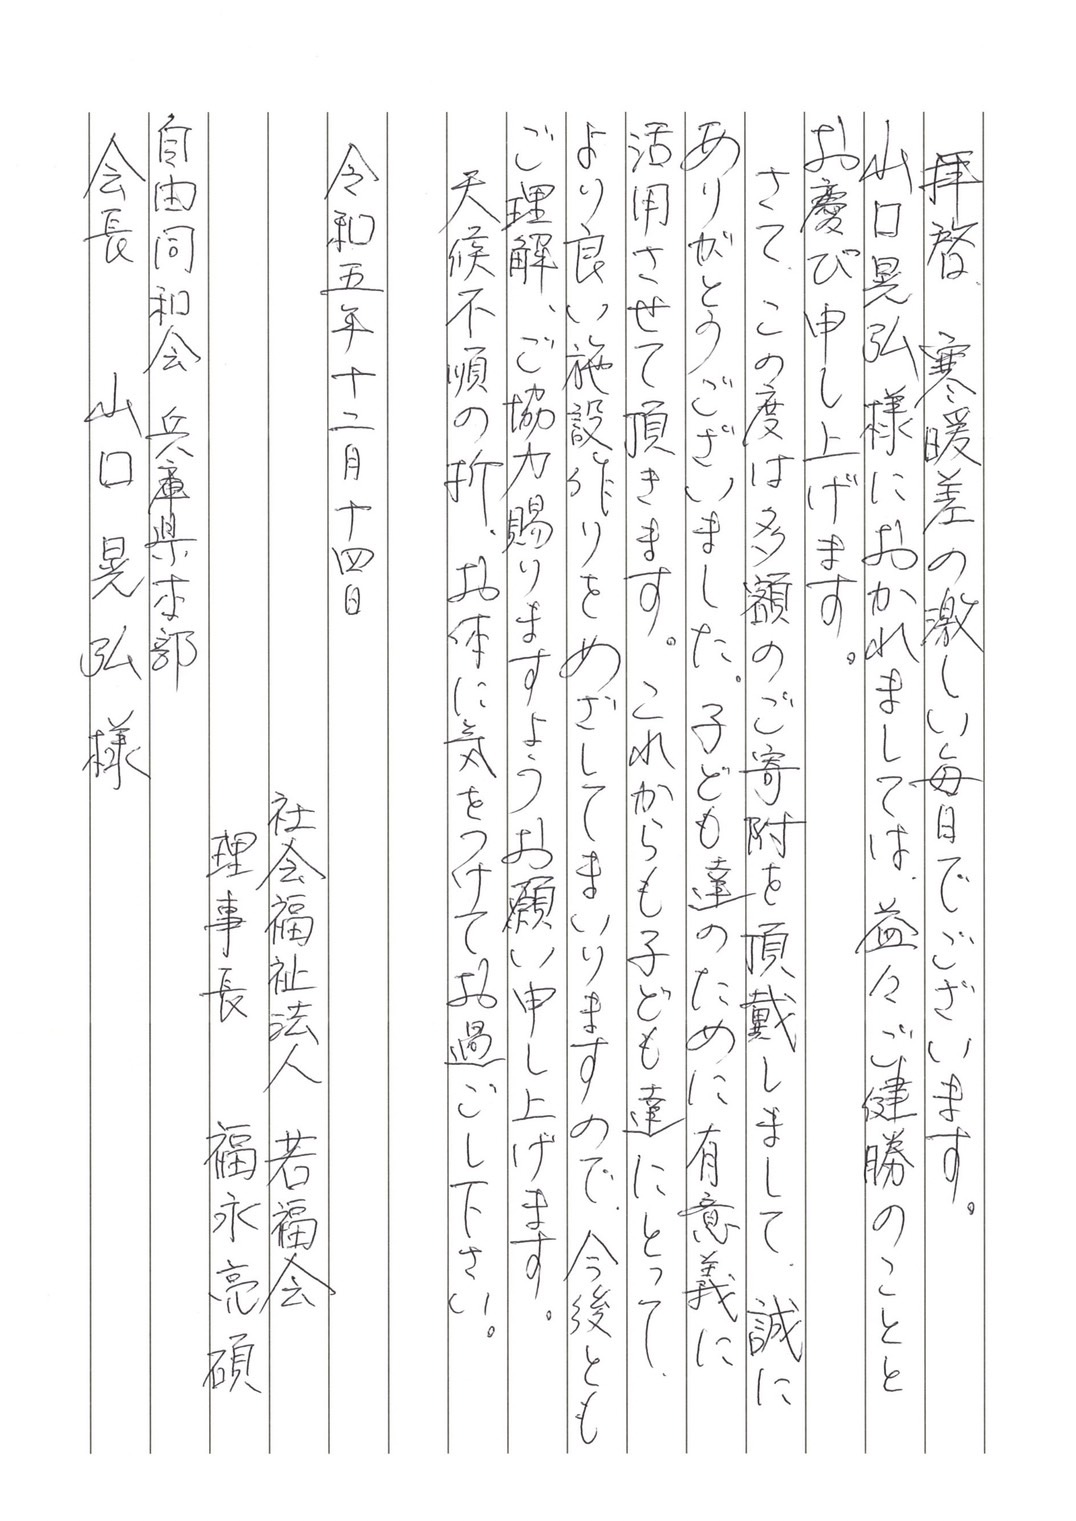 拝啓、寒暖差の激しい毎日でございます。
山口晃弘様におかれましては、益々ご健勝のことと
お慶び申し上げます。
さて、この度は多額のご寄附を頂戴しまして、誠に
ありがとうございました。子ども達のために有意義に
活用させて頂きます。これからも子ども達にとって、
より良い施設作りをめざしてまいりますので、今後とも
ご理解、ご協力賜りますようお願い申し上げます。
天候不順の折、お体に気をつけてお過ごし下さい。
令和五年十二月十四日
社会福祉法人 若福会
理事長 福永亮碩
自由同和会 兵庫県本部
会長 山口晃弘様